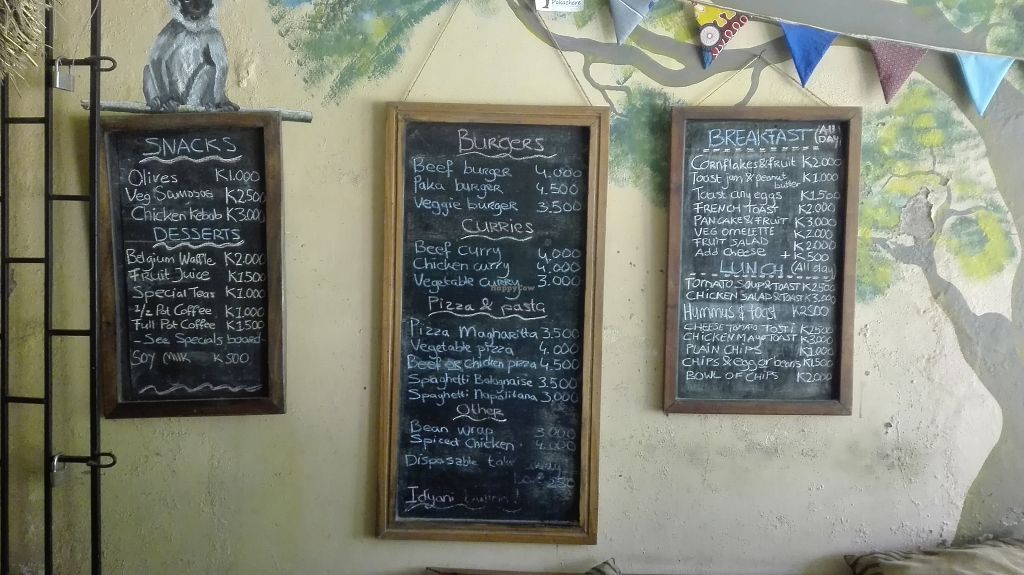 Pakachere
SNACKS
Olives K1.000
Veg Samoose K2500
Chicken Kebab K3.000
DESSERTS
Belgium Waffle K2.000
Fruit Juice K1500
Special Teas K1.000
1/2 Pot Coffee K1.000
Full Pot Coffee K1500
-See Specials board-
Soy Milk K500
BURGERS
Beef burger 4.000
Paka burger 4.500
Veggie burger 3.500
CURRIES
Beef curry 4.000
Chicken curry 4.000
Vegetable curry 3.000
HappyCow
Pizza & pasta
Pizza Magharetta 3.500
Vegetable pizza 4.000
Beef or chicken pizza 4,500
Spaghetti Bolognaise 3.500
Spaghetti Napolitana 3.000
Other
Bean wrap 3.000
Spiced Chicken 4.000
Disposable take away
250
Idyani
BREAKFAST (All DAY)
Cornflakes & fruit K2.000
Toast jam & peanut butter K1.000
Toast any eggs K1.500
FRENCH TOAST K2.000
PANCAKE & FRUIT K3.000
VEG OMELETTE K2.000
FRUIT SALAD K2.000
Add cheese + K500
LUNCH (All day)
TOMATO SOUP & TOAST K2.500
CHICKEN SALAD & TOAST K3.000
Hummus & toast K2500
CHEESE TOMATO TOSTI K2500
CHICKEN MAYO TOAST K3.000
PLAIN CHIPS K1.000
CHIPS & egg or beans K1.500
BOWL OF CHIPS K2.000